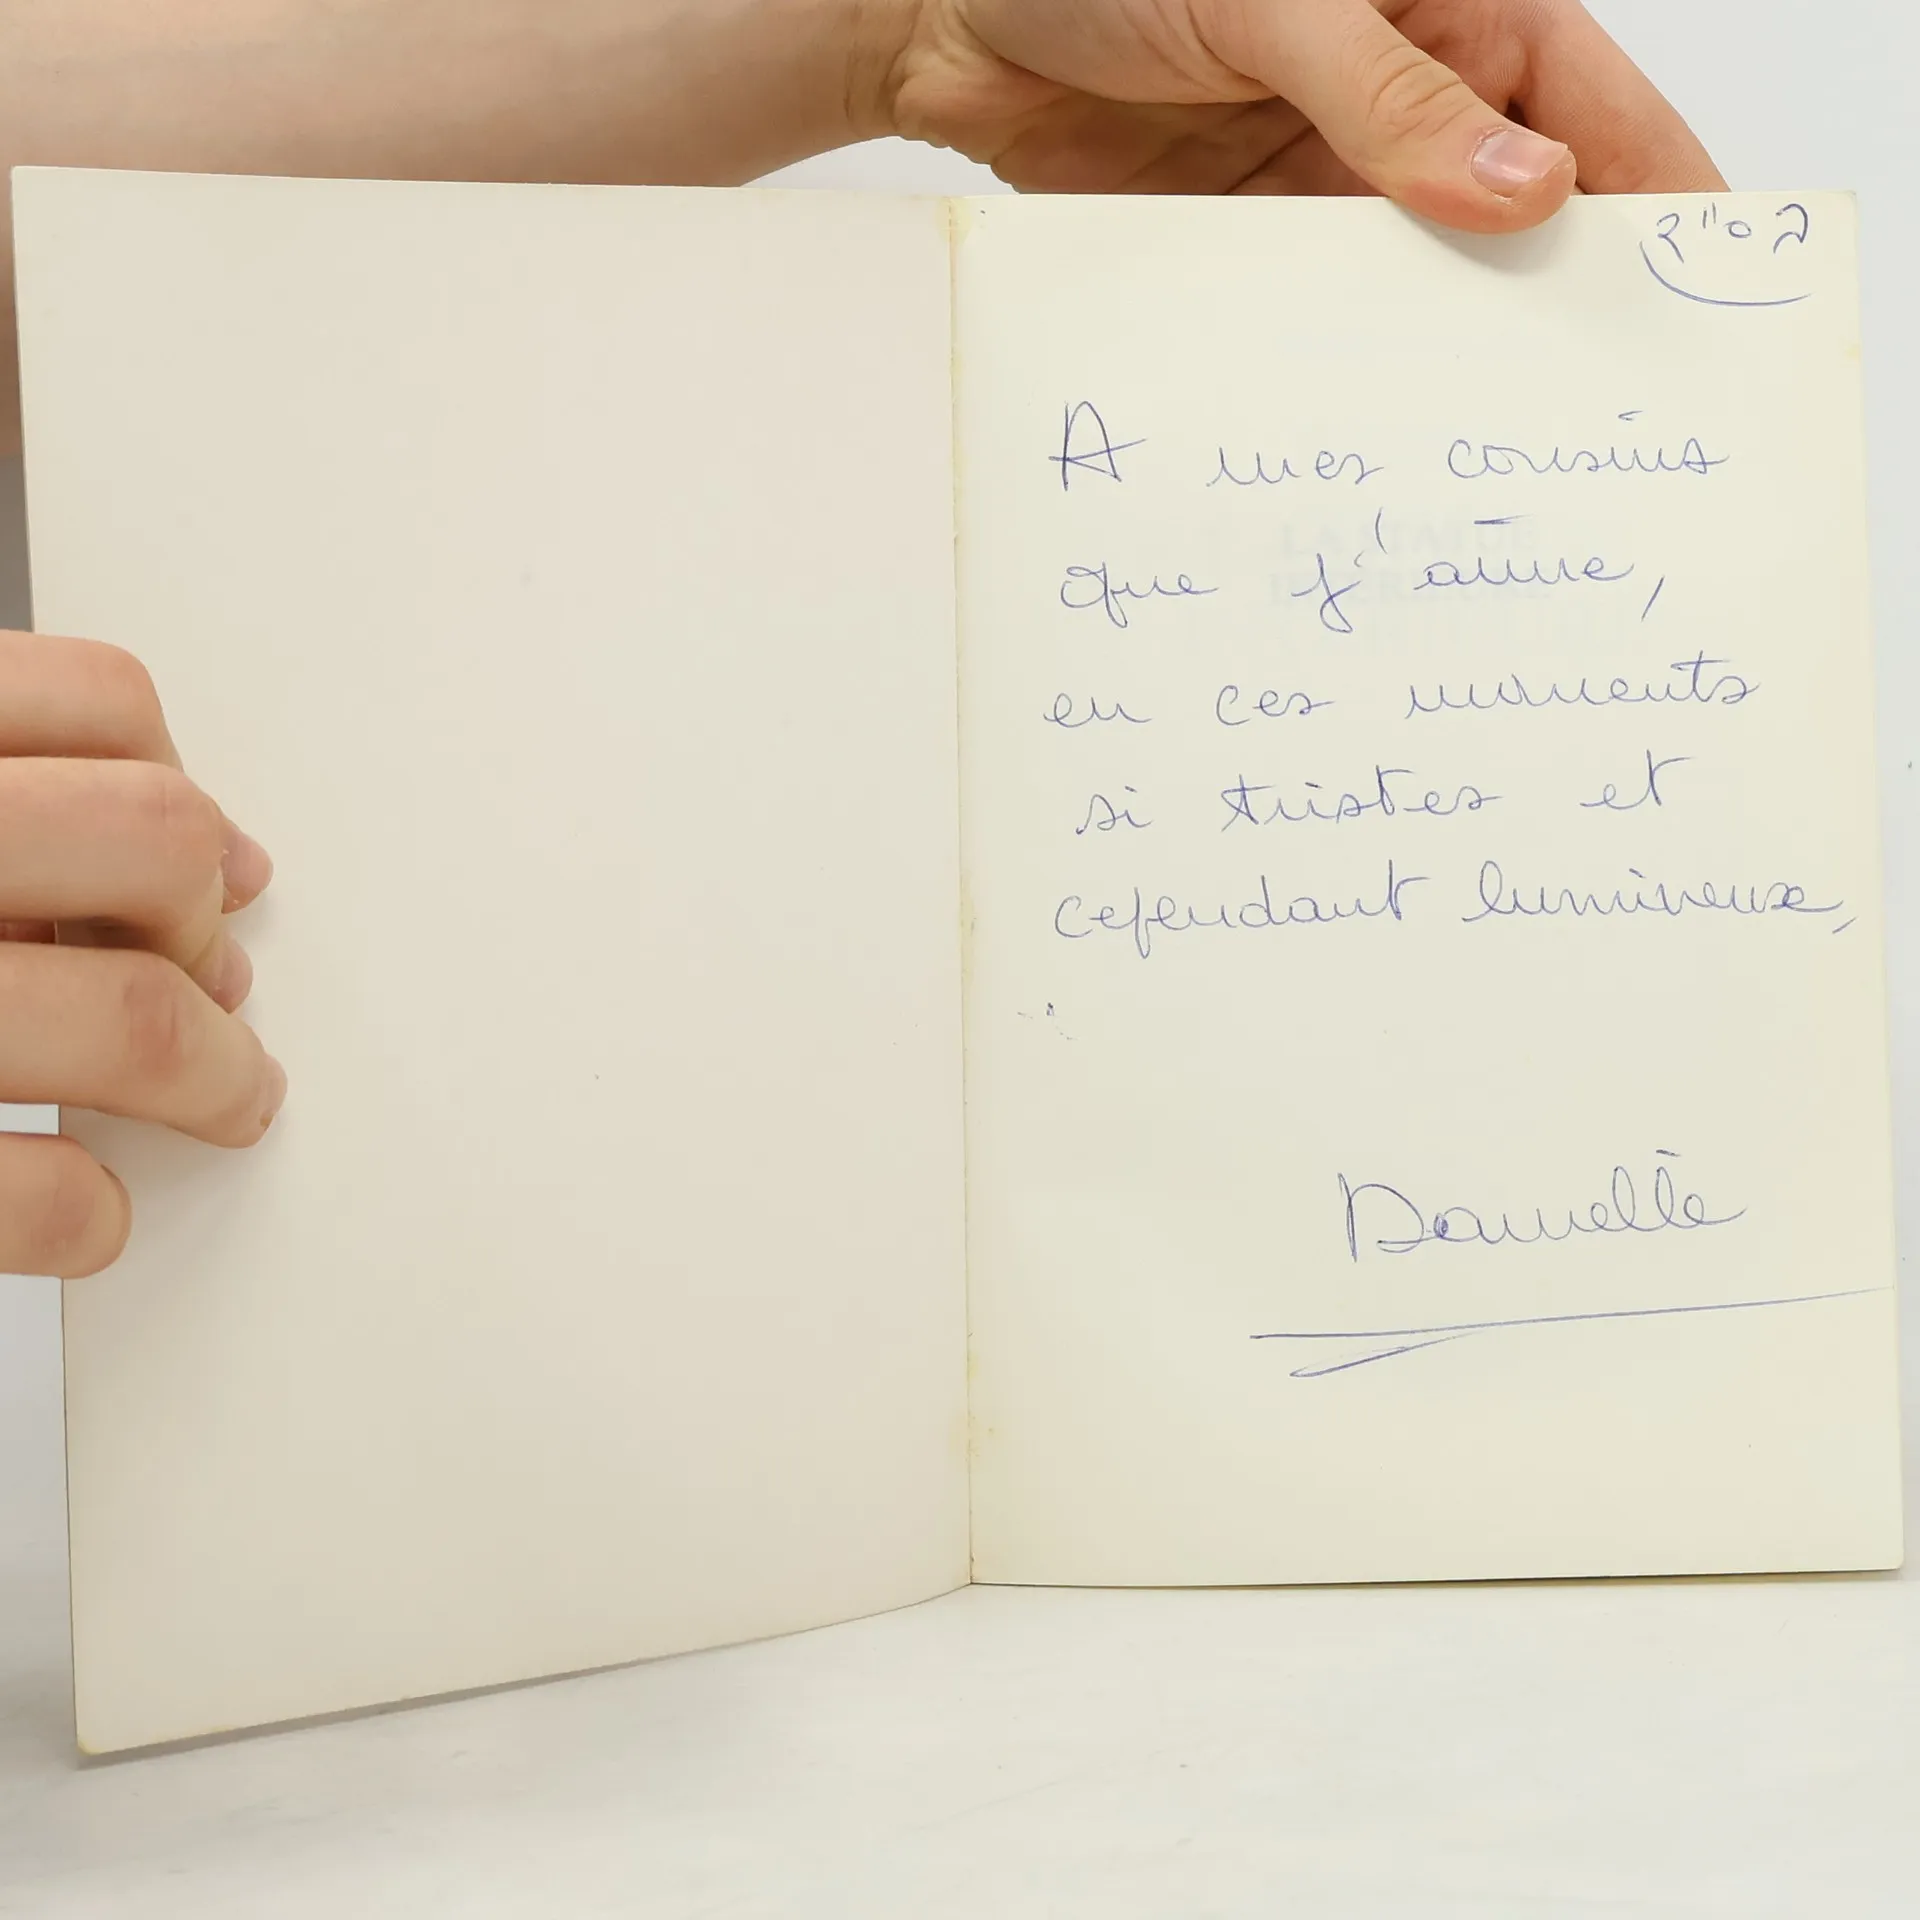 בס"ד
A mes cousins
que j'aime,
en ces moments
si tristes et
cependant lumineux,
Danielle